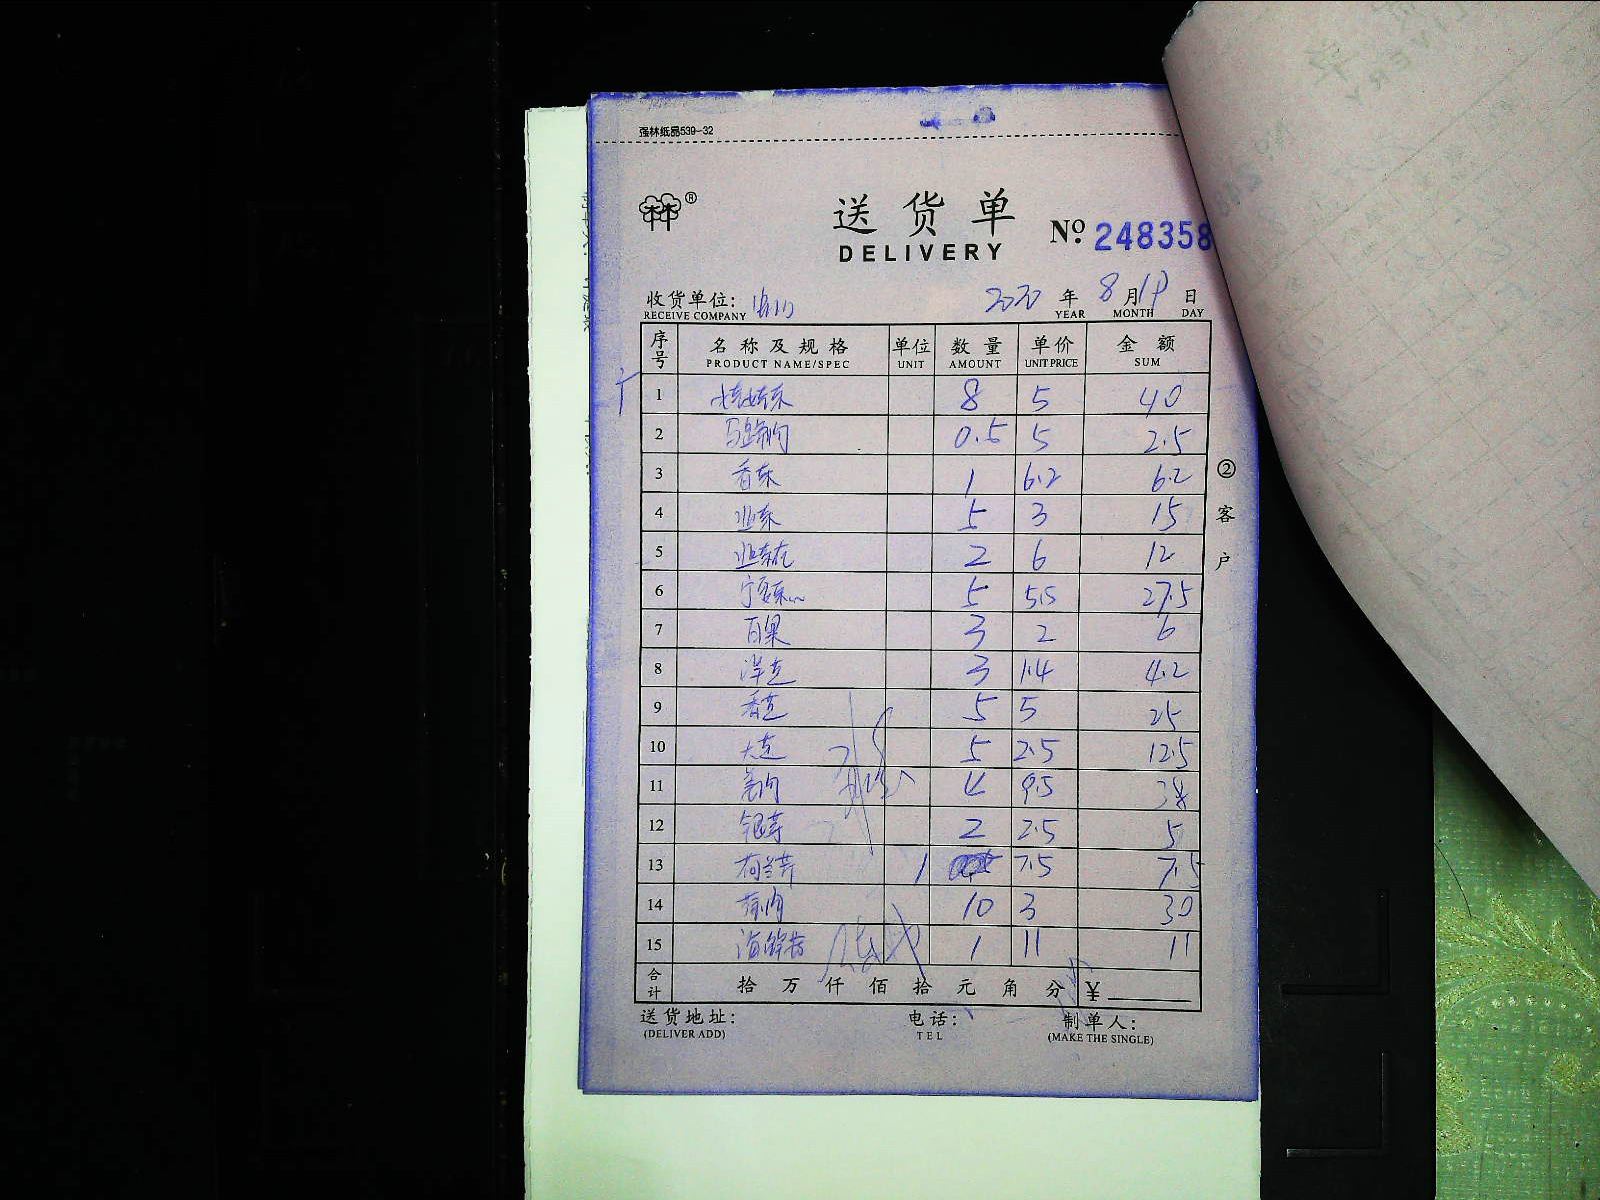 强林纸品539-32
®
送货单
DELIVERY
No. 248358
收货单位: 2020 年 8 月 19 日
RECEIVE COMPANY YEAR MONTH DAY
序号 名称及规格 单位 数量 单价 金额
PRODUCT NAME/SPEC UNIT AMOUNT UNIT PRICE SUM
1 8 5 40
2 0.5 5 2.5
3 香菜 1 6.2 6.2
4 韭菜 5 3 15
5 2 6 12
6 5 5.5 27.5
7 百果 3 2 6
8 洋芝 3 1.4 4.2
9 香芝 5 5 25
10 大芝 5 2.5 12.5
11 姜肉 4 9.5 38
12 银芽 2 2.5 5
13 荷兰芹 1 7.5 7.5
14 10 3 30
15 海鲜菇 1 11 11
② 客户
合计 拾 万 仟 佰 拾 元 角 分 ¥
送货地址: 电话: 制单人:
(DELIVER ADD) TEL (MAKE THE SINGLE)